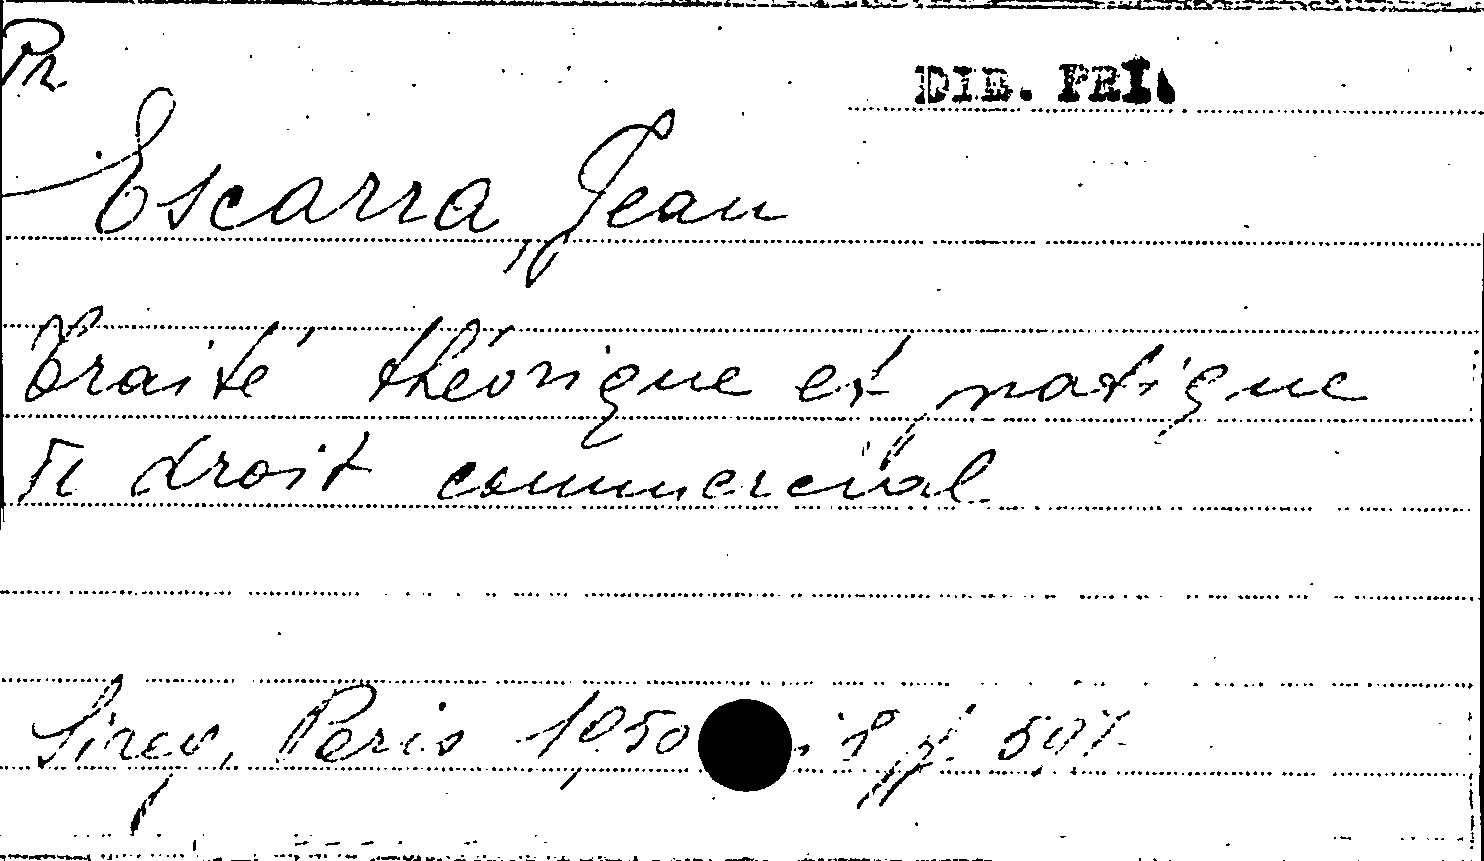 Pr
DIR. PRI.
Escarra, Jean
Traité théorique et pratique
de droit commercial
Sirey, Paris 1950 i 8 p. 597